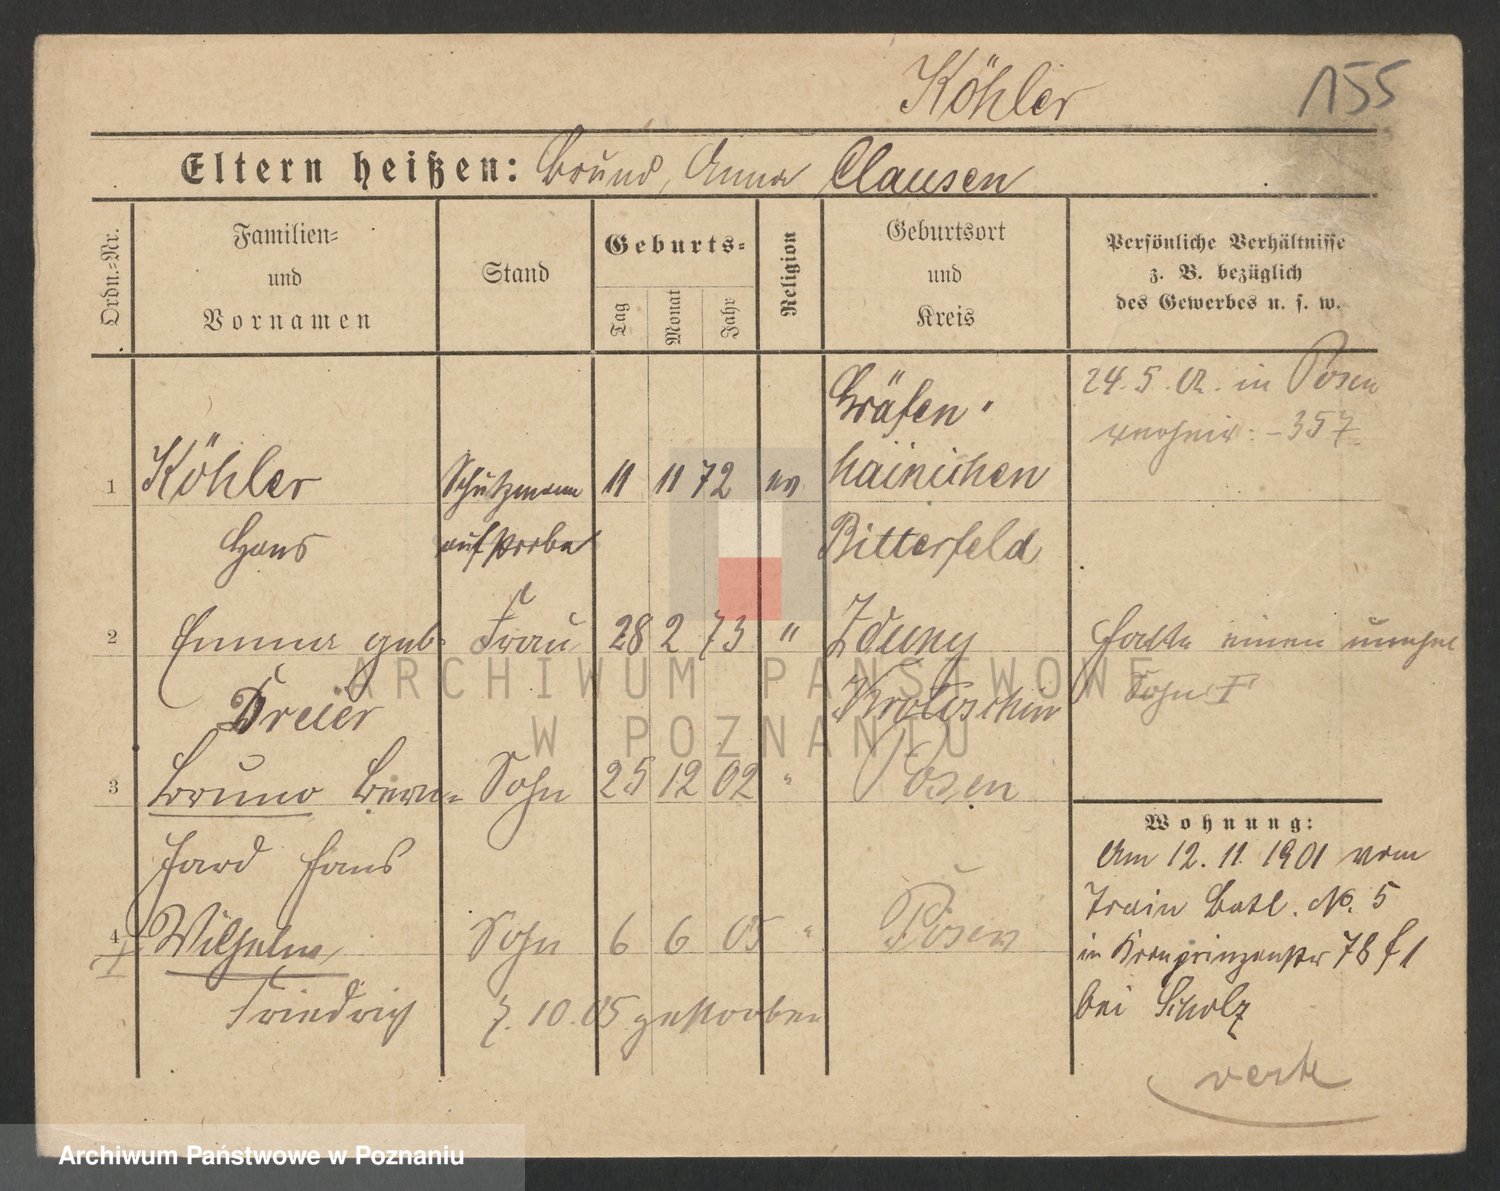 Köhler
155
Eltern heißen: Bruno, Anna Clausen
Ordn.-Nr.
Familien-
und
Vornamen
Stand
Geburts-
Tag
Monat
Jahr
Religion
Geburtsort
und
Kreis
Persönliche Verhältnisse
z. B. bezüglich
des Gewerbes u. s. w.
24. 5. 02. in Posen
357
Gräfen-
1 Köhler Schutzmann 11 11 72 ev hainichen
Hans auf Probe Bitterfeld
2 Emma geb. Frau 28 2 73 " Zduny
Dreier Krotoschin
hatte einen unehel
Sohn
3 Bruno Bern- Sohn 25 12 02 " Posen
hard Hans
4 Wilhelm Sohn 6 6 05 " Posen
Friedrich 7. 10. 05 gestorben
Wohnung:
Am 12. 11 1901 vom
Train Batl. No. 5
in Kronprinzenstr 78 I
bei Scholz
verte
ARCHIWUM PAŃSTWOWE
W POZNANIU
Archiwum Państwowe w Poznaniu